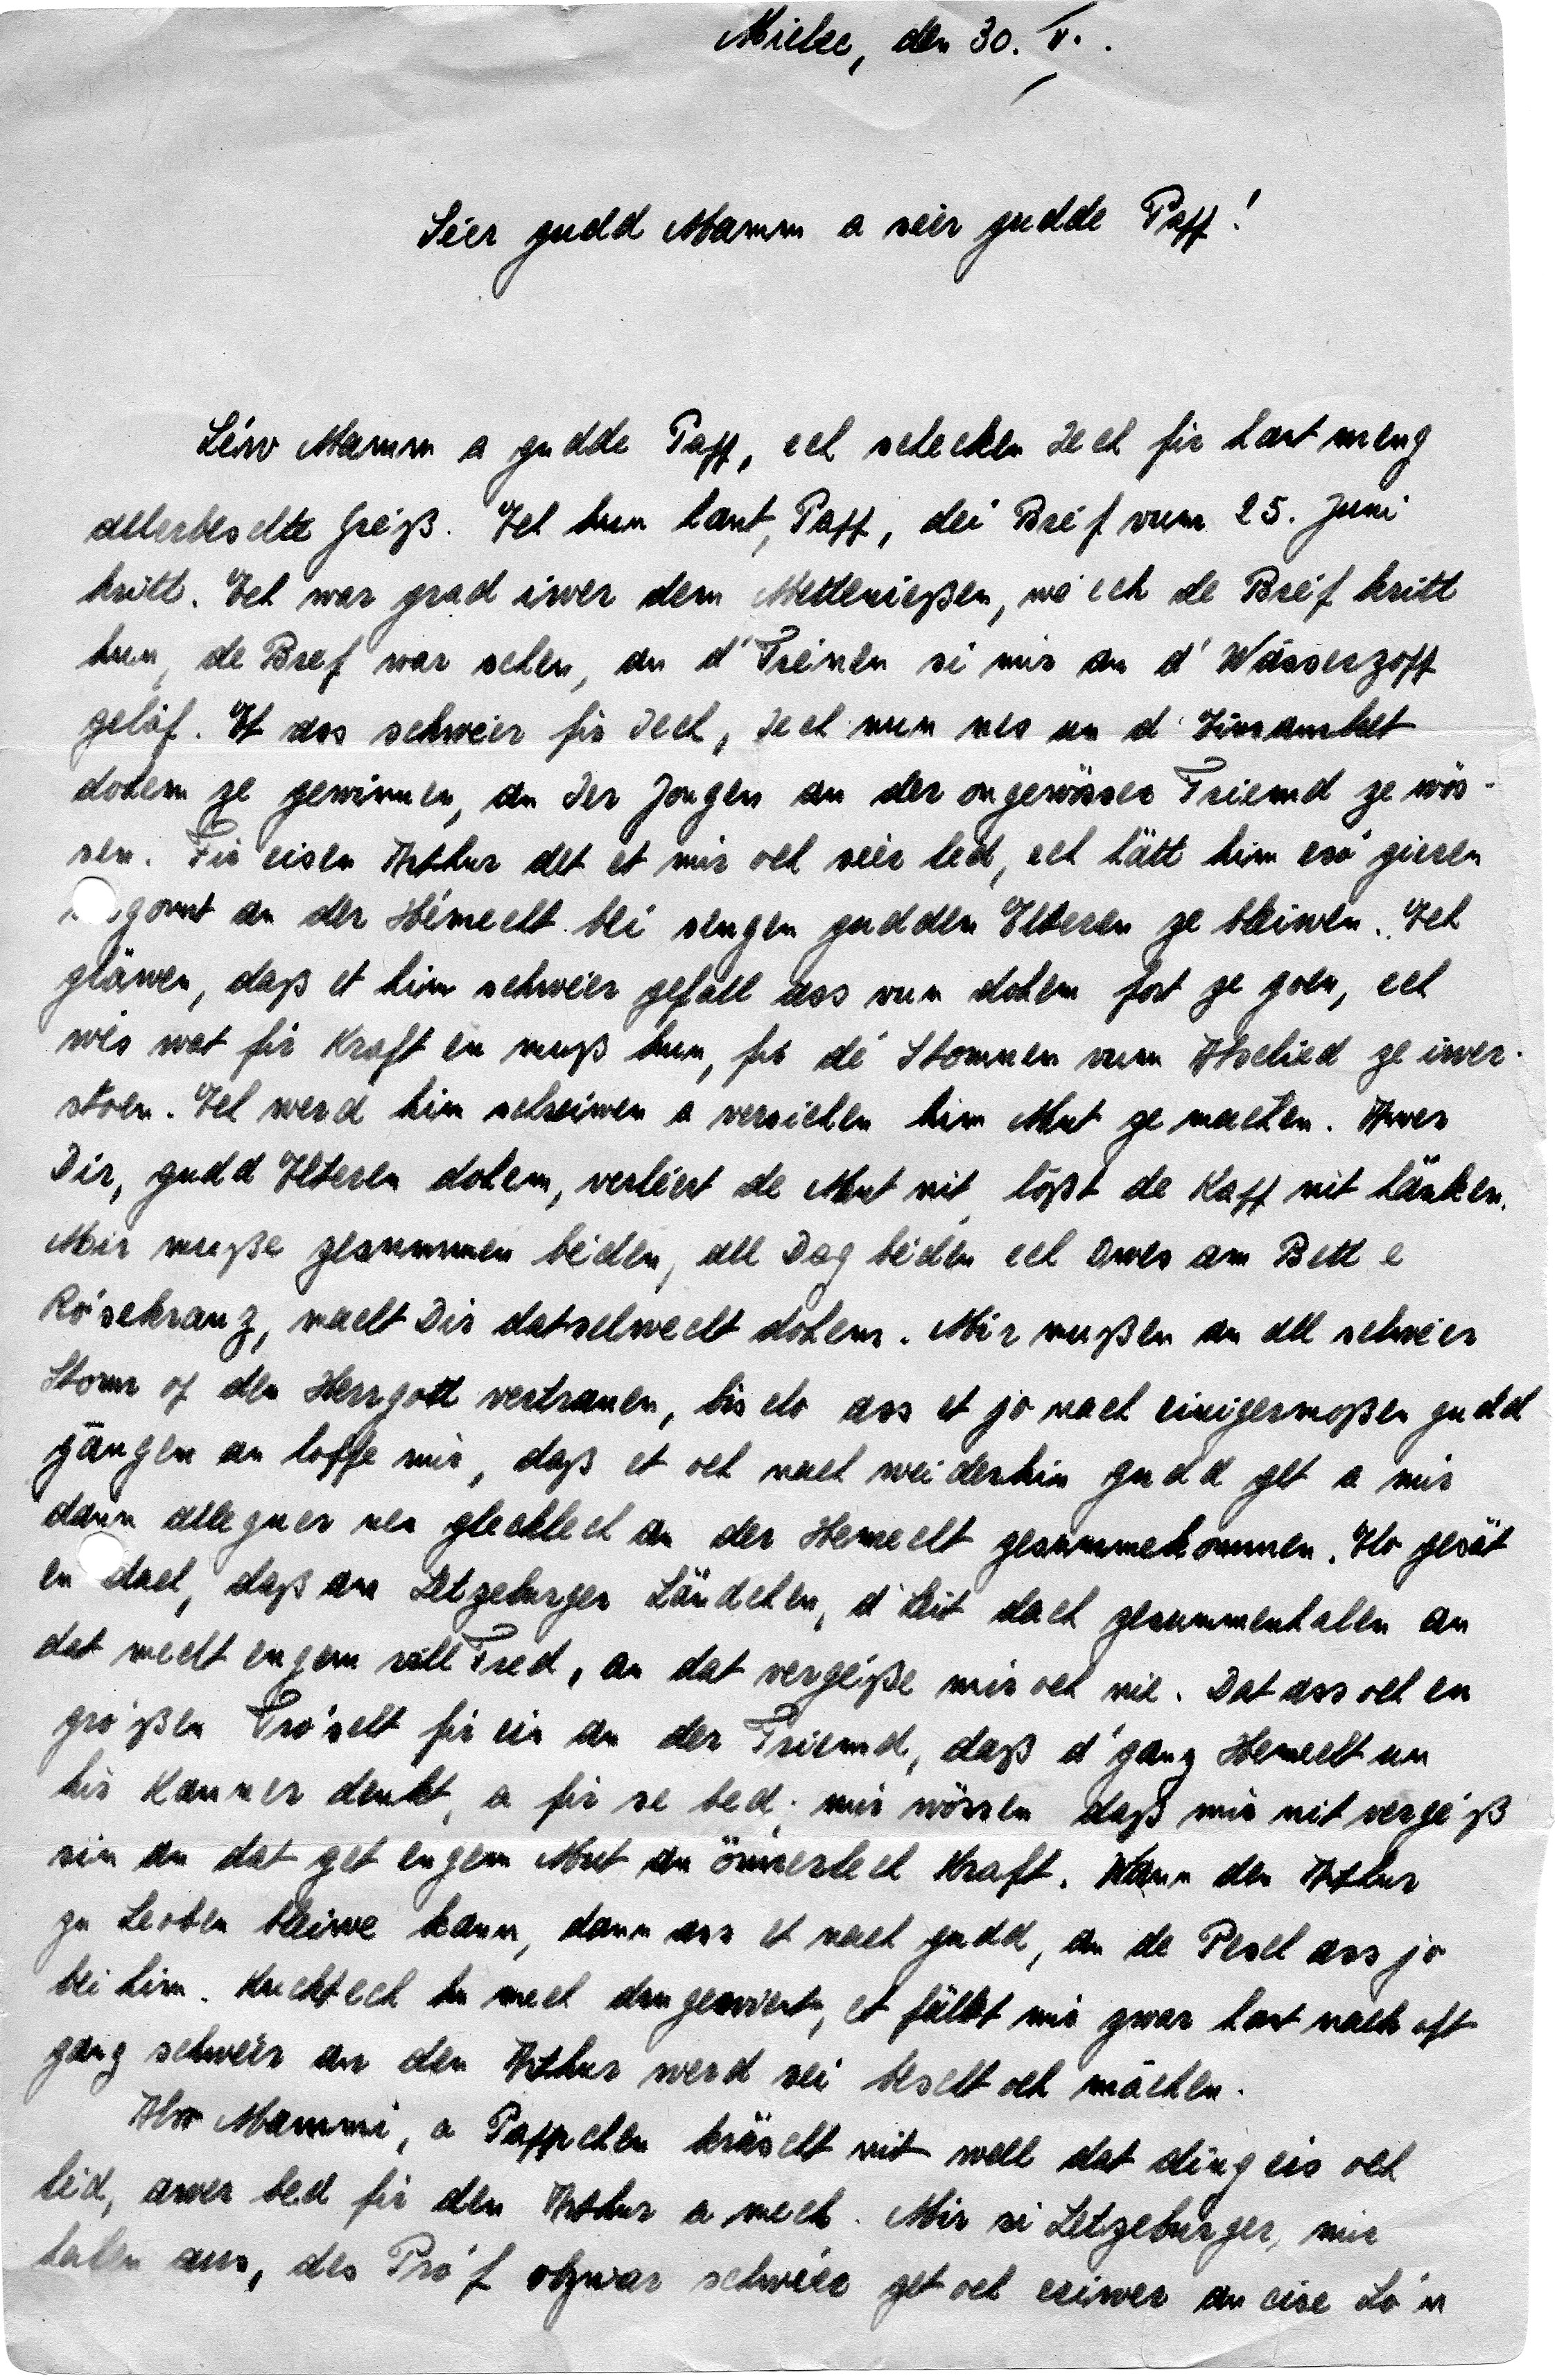 Mielec, den 30. V.
Séier gudd Mamm a séier gudde Papp!
Léiw Mamm a gudde Papp, ech schecken Iech fir haut meng
allerbeschte Gréiß. Ech hun haut, Papp, déi Bréif vum 25. Juni
kritt. Ech war grad iwer dem Mëttenießen, wé ech de Bréif kritt
hun, de Bref war schen, an d'Tréinen si mir an d'Wässerzoff
gelâf. Et ass schwéier fir Iech, Iech nun nes un d'Einsamket
dohem ze gewinnen, an Ier Jongen an der ongewösser Friemd ze wös-
sen. Fir eisen Arthur det et mir och séier led, ech hätt him esó gieren
gegonnt an der Hémecht bei sengen gudden Elteren ze bleiwen. Ech
gläwen, daß et him schwéier gefall ass vun dohem fort ze goen, ech
wés wat fir Kraft en muß hun, fir dé Stonnen vum Abschied ze iwer-
stoen. Ech werd him schreiwen a versichen him Mut ze machen. Awer
Dir, gudd Elteren dohem, verléiert de Mut nit, lößt de Kapp nit hänken.
Mir muße zesummen bieden, all Dag béiden ech Owes am Bett e
Rósekranz, macht Dir datselwecht dohem. Mir mußen an all schwéier
Stonn op den Herrgott vertrauen, bis elo ass et jo nach einigermoßen gudd
gängen an hoffe mir, daß et och nach weiderhin gudd get a mir
dann alleguer nen glecklech an der Hemecht zesummekommen. Elo gesäit
en dach, daß am Letzeburger Ländchen, d'Leit dach zesummenhalen an
dat mecht engem vill Fred, an dat vergéße mir och nie. Dat ass och en
gróßen Tróscht fir eis an der Friemd, daß d'ganz Hemecht un
hir Kanner denkt, a fir se bed; mir wössen daß mir nit vergéß
sin an dat get engem Mut an önnerlech Kraft. Wann den Arthur
zu Leoben bleiwe kann, dann ass et nach gudd, an de Pesch ass jo
bei him. Kuckt ech hu mech dru gewinnt, et fällt mir zwar haut nach oft
ganz schwéier an den Arthur werd séi bescht och mächen.
Also Mammi, a Pappchen kräischt nit well dat ding eis och
léd, awer bed fir den Arthur a mech. Mir si Letzeburger, mir
halen aus, des Próf obzwar schwéier get och eriwer an eise Ló'n